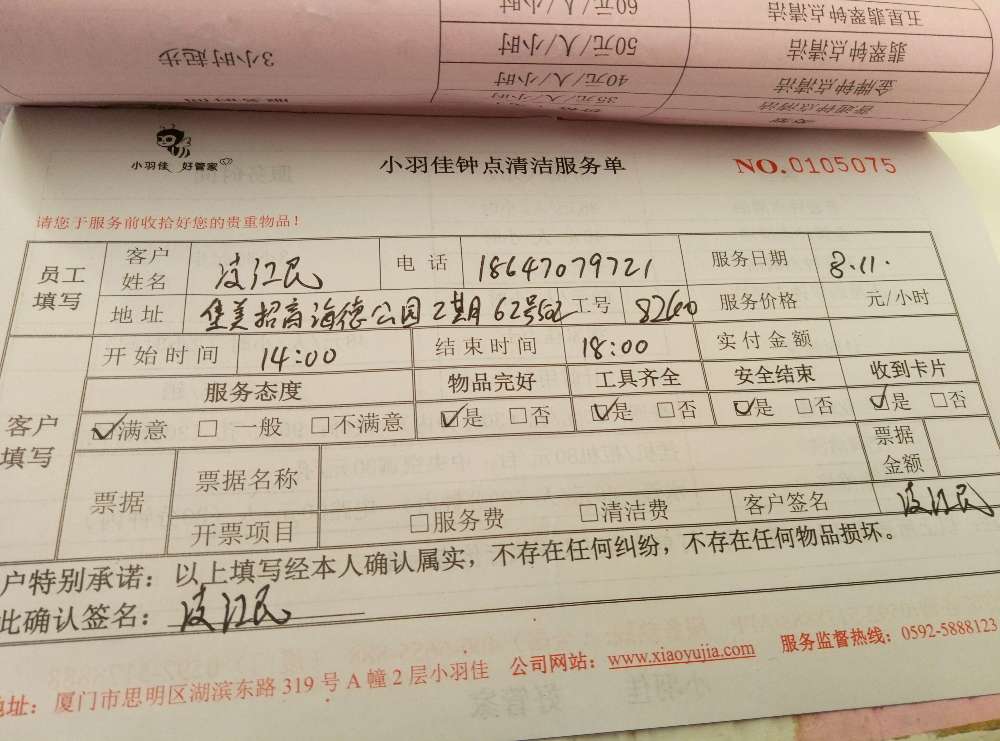 60元/人/小时 五星翡翠钟点清洁
3小时起步 50元/人/小时 翡翠钟点清洁
40元/人/小时 金牌钟点清洁
35元/人/小时 普通钟点清洁
小羽佳 好管家
小羽佳钟点清洁服务单 NO.0105075
请您于服务前收拾好您的贵重物品！
员工填写 客户姓名 皮江民 电话 18647079721 服务日期 8.11.
地址 集美招商海德公园2期62号502 工号 8260 服务价格 元/小时
客户填写 开始时间 14:00 结束时间 18:00 实付金额
服务态度 物品完好 工具齐全 安全结束 收到卡片
☑满意 □一般 □不满意 ☑是 □否 ☑是 □否 ☑是 □否 ☑是 □否
票据 票据名称 票据金额
开票项目 □服务费 □清洁费 客户签名 皮江民
户特别承诺：以上填写经本人确认属实，不存在任何纠纷，不存在任何物品损坏。
此确认签名：皮江民
地址：厦门市思明区湖滨东路319号A幢2层小羽佳 公司网站：www.xiaoyujia.com 服务监督热线：0592-5888123